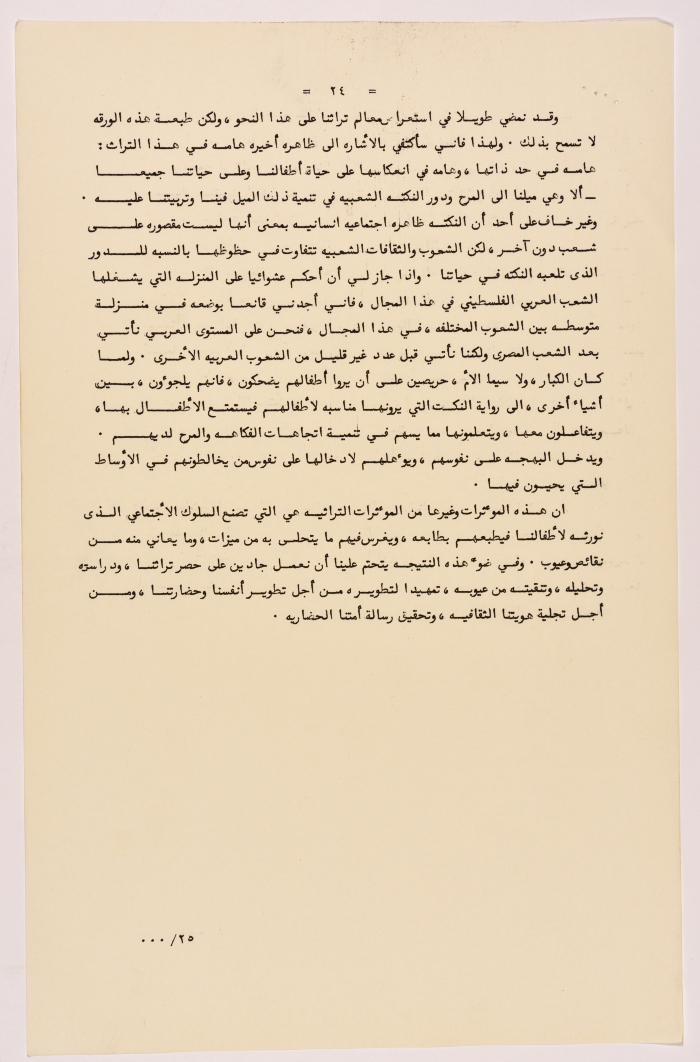 = ٢٤ =
وقد نمضي طويلا في استعراض معالم تراثنا على هذا النحو ، ولكن طبعة هذه الورقه
لا تسمح بذلك ٠ ولهذا فانسي سأكتفي بالأشاره الى ظاهره أخيره هامه في هذا التراث :
هامه في حد ذاتها ، وهامه في انعكاسها على حياة أطفالنا وعلى حياتنا جميعا
ـ ألا وهي ميلنا الى المرح ودور النكته الشعبيه في تنمية ذلك الميل فينا وتربيتنا عليه ٠
وغير خاف على أحد أن النكته ظاهره اجتماعيه انسانيه بمعنى أنها ليست مقصوره على
شعب دون آخر ، لكن الشعوب والثقافات الشعبيه تتفاوت في حظوظها بالنسبه للدور
الذى تلعبه النكته في حياتنا ٠ واذا جاز لي أن أحكم عشوائيا على المنزله التي يشغلها
الشعب العربي الفلسطيني في هذا المجال ، فاني أجدني قانعا بوضعه في منزلة
متوسطه بين الشعوب المختلفه ، في هذا المجال ، فنحن على المستوى العربي نأتي
بعد الشعب المصرى ولكننا نأتي قبل عدد غير قليل من الشعوب العربيه الأخرى ٠ ولما
كان الكبار ، ولا سيما الأم ، حريصين على أن يروا أطفالهم يضحكون ، فانهم يلجوءون ، بين
أشياء أخرى ، الى رواية النكت التي يرونها مناسبه لأطفالهم فيستمتع الأطفال بها ،
ويتفاعلون معها ، ويتعلمونها مما يسهم في تنمية اتجاهات الفكاهه والمرح لديهم ٠
ويدخل البهجه على نفوسهم ، ويوءهلهم لادخالها على نفوس من يخالطونهم في الأوساط
التي يحيون فيها ٠
ان هذه الموءثرات وغيرها من الموءثرات التراثيه هي التي تصنع السلوك الأجتماعي الذى
نورثه لأطفالنا فيطبعهم بطابعه ، ويغرس فيهم ما يتحلى به من ميزات ، وما يعاني منه من
نقائص وعيوب ٠ وفي ضوء هذه النتيجه يتحتم علينا أن نعمل جادين على حصر تراثنا ، ودراسته
وتحليله ، وتنقيته من عيوبه ، تمهيدا لتطويره من أجل تطوير أنفسنا وحضارتنا ، ومن
أجل تجلية هويتنا الثقافيه ، وتحقيق رسالة أمتنا الحضاريه ٠
٢٥/ ٠٠٠